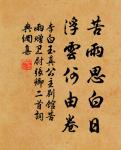 苦雨思白日
浮雲何由卷
李白玉真公主別館苦
雨贈衛尉張卿二首詞
典網集